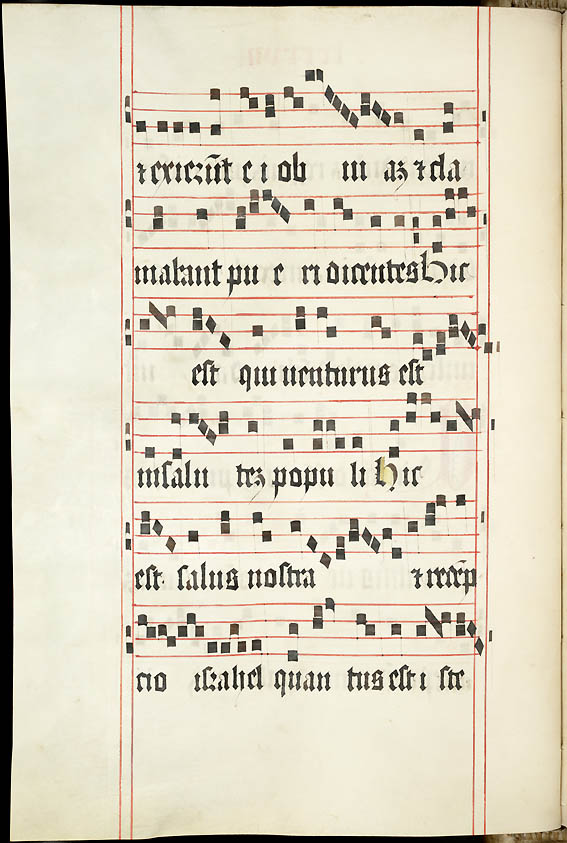 ⁊ exierūt e i ob ui az ⁊ cla
mabant pu e ri dicentes hic
est qui uenturus est
in salu tez popu li hic
est salus nostra ⁊ redēp
cio israhel quan tus est i ste